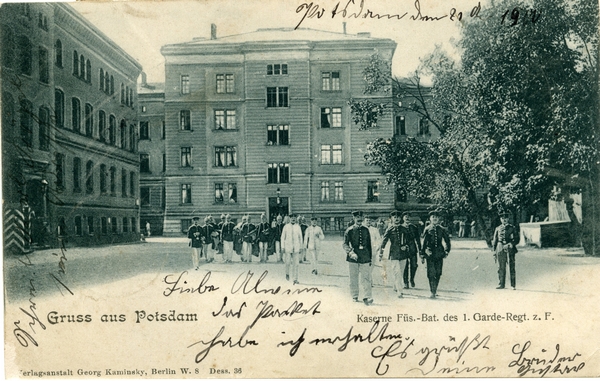 Potsdam den
Gruss aus Potsdam
Kaserne Füs.-Bat. des 1. Garde-Regt. z. F.
Liebe Alwine
das Packet
habe ich erhalten.
Es grüßt
Deine Bruder
Gustav
Verlagsanstalt Georg Kaminsky, Berlin W. 8 Dess. 36